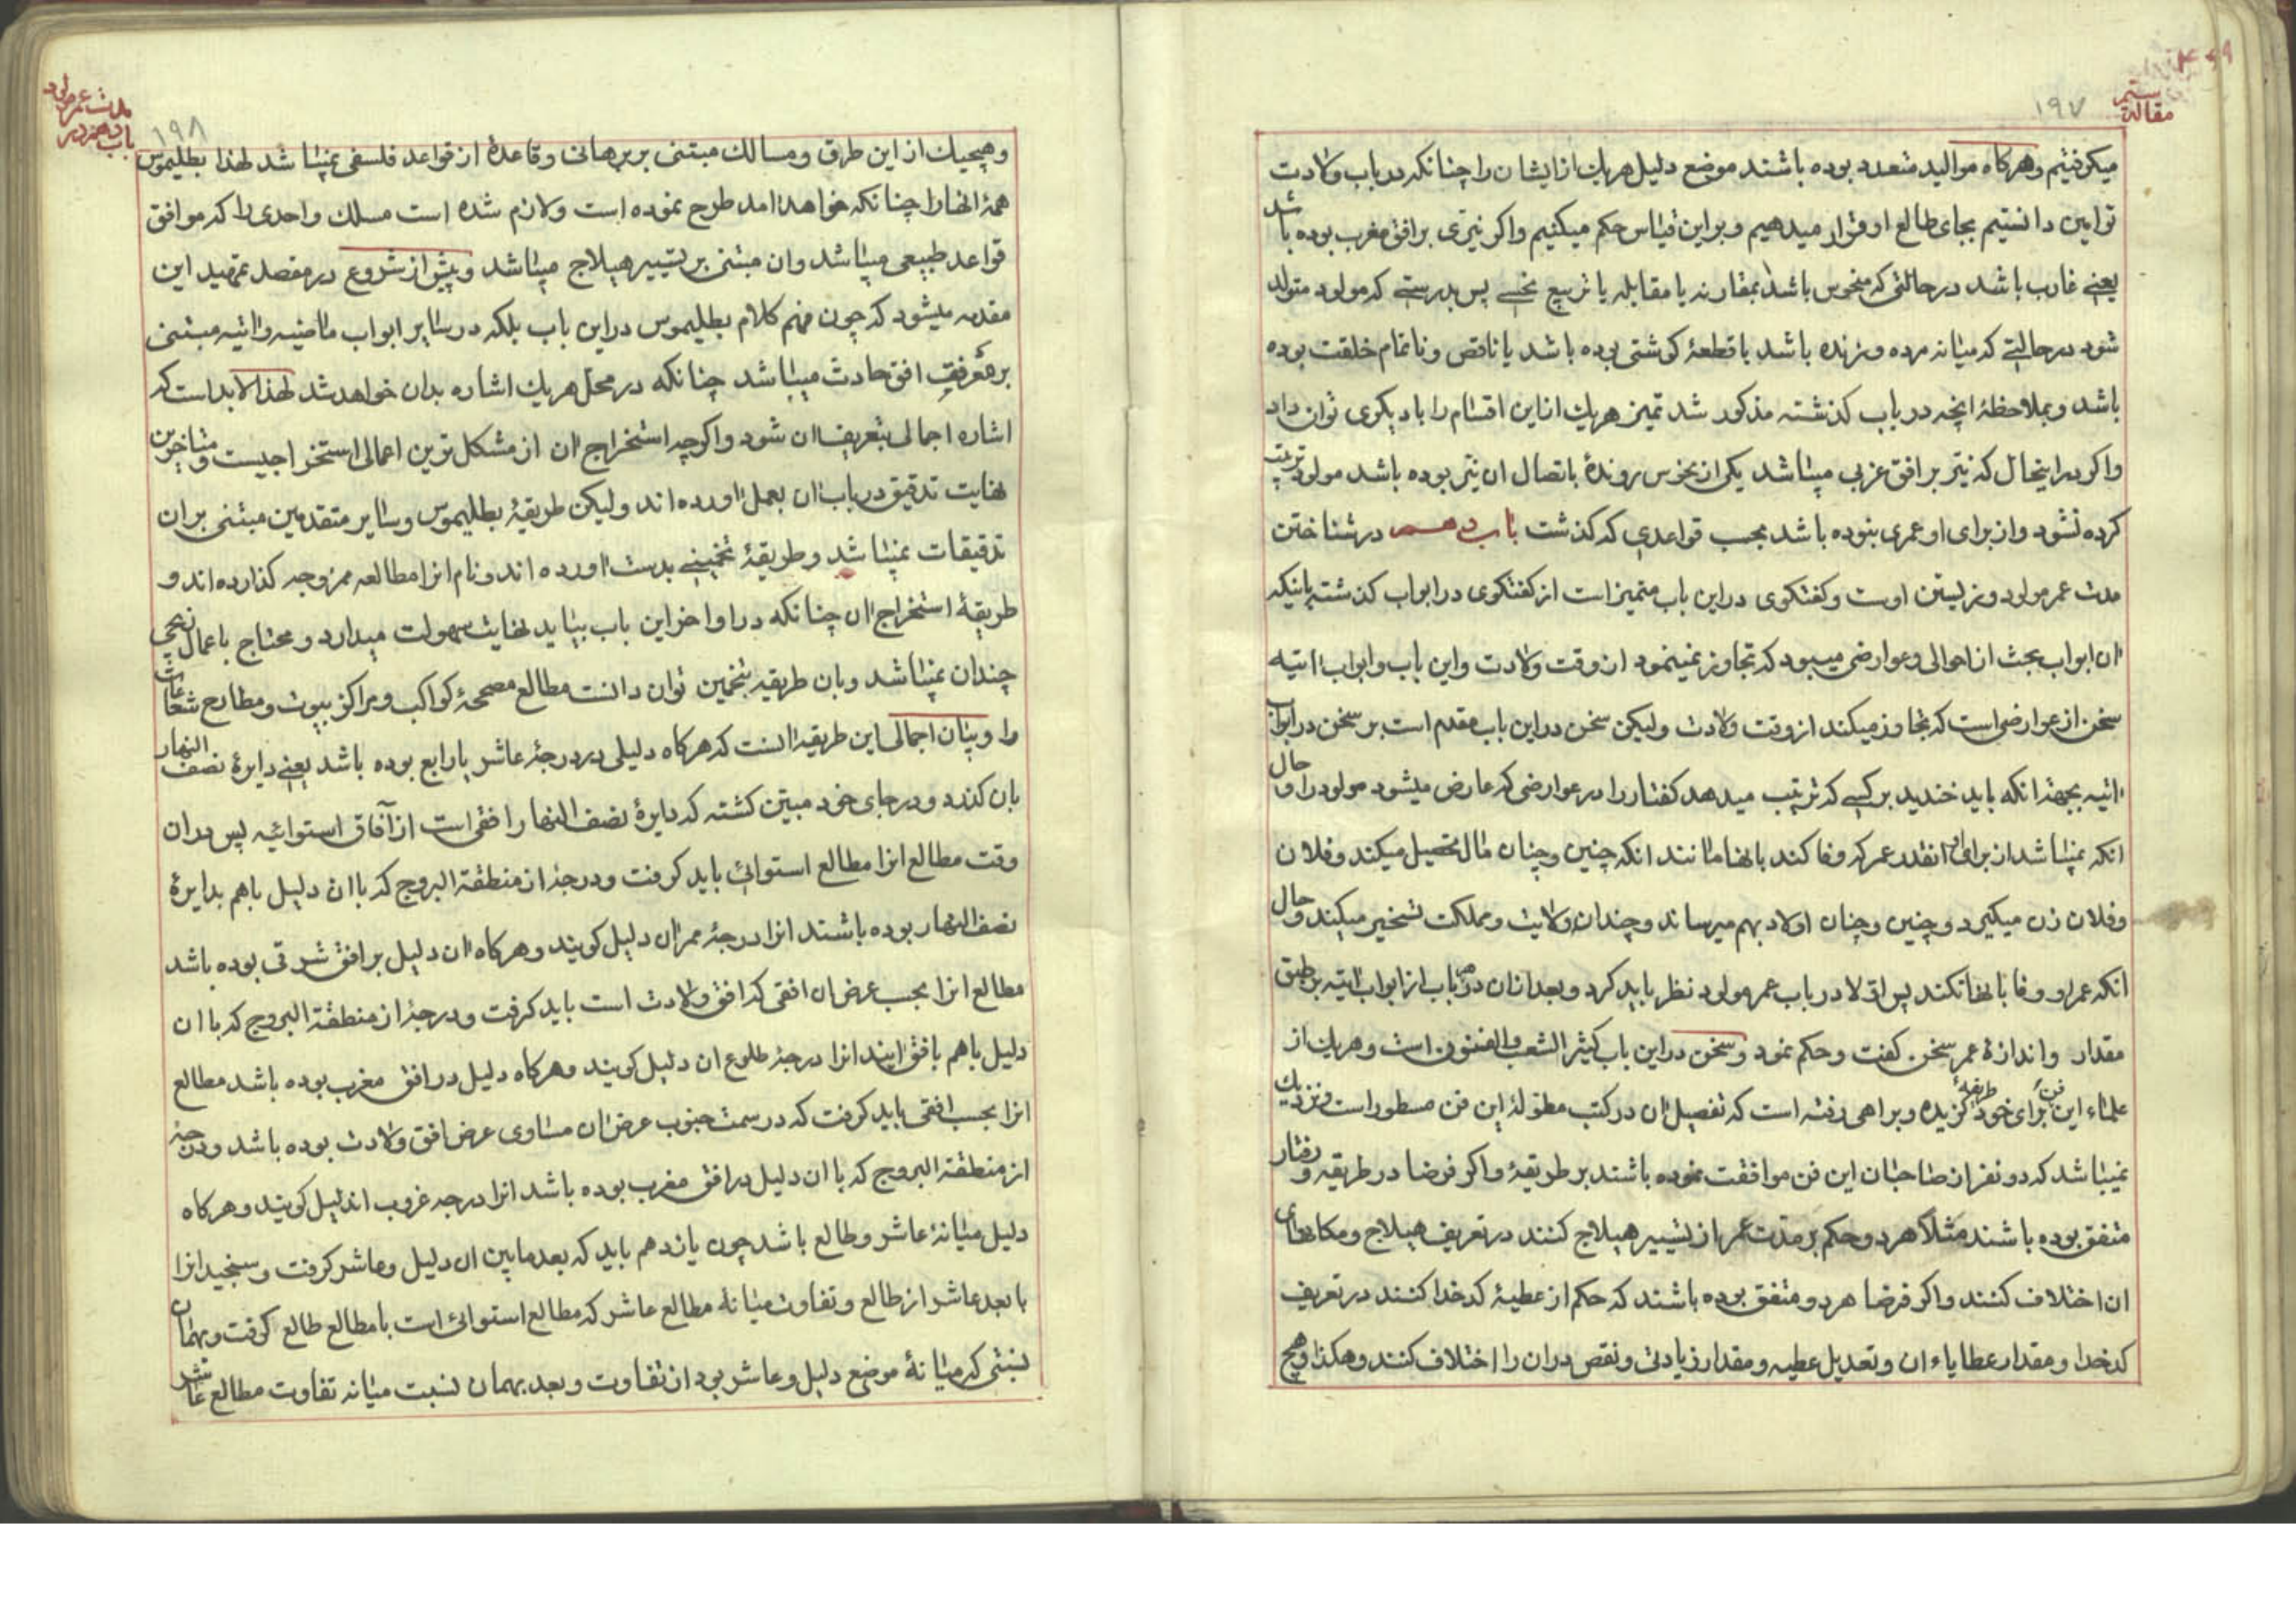 مقالة سیم
١٩٧
میکرفتیم وهرکاه موالید متعدد بوده باشند موضع دلیل هریك از ایشان را چنانکه در باب ولادت
توامین دانستیم بجای طالع او قرار میدهیم و براین قیاس حکم میکنیم واکر نیّری بر افق مغرب بوده باشد
یعنے غارب باشد در حالتی که منحوس باشد بمقارنه یا مقابله یا تربیع نحسے پس بدرستے که مولود متولد
شود در حالیتے که میانه مرده و زنده باشد یا قطعهٔ کوشتی بوده باشد یا ناقص و ناتمام خلقت بوده
باشد و بملاحظهٔ انچه در باب کذشته مذکور شد تمیز هریك از این اقسام را با دیکری توان داد
واکر در اینحال که نیّر بر افق غربی میباشد یکی از نحوس روندهٔ باتصال ان نیّر بوده باشد مولود تربیت
کرده نشود و از برای او عمری بنوده باشد بحسب قواعدی که کذشت باب دهم در شناختن
مدت عمر مولود و زیستن اوست و کفتکوی در این باب متمیز است از کفتکوی در ابواب کذشته باینکه
ان ابواب بحث از احوالی و عوارضی میبود که تجاوز نمینمود از وقت ولادت و این باب و ابواب اتیه
سخن از عوارضی است که تجاوز میکند از وقت ولادت ولیکن سخن در این باب مقدم است بر سخن در ابواب
اتیه بجهة انکه باید خندید بر کسے که ترتیب میدهد کفتار را در عوارضی که عارض میشود مولود را و حال
انکه نمیباشد از برای او انقدر عمر که وفا کند بانها مانند انکه چنین و چنان مال تحصیل میکند و فلان
و فلان زن میکیرد و چنین و چنان اولاد بهم میرساند و چندان ولایت و مملکت تسخیر میکند و حال
انکه عمر او وفا بانها نکند پس اوّلا در باب عمر مولود نظر باید کرد و بعد از ان در هر باب از ابواب اتیه بر طبق
مقدار و اندازهٔ عمر سخن کفت و حکم نمود و سخن در این باب کثیر الشعب والفنون است و هریك از
علماء این فن برای خود طریقهٔ کزیده و براهی رفته است که تفصیل ان در کتب مطوّلهٔ این فن مسطور است و نزدیك
نمیباشد که دو نفر از صاحبان این فن موافقت نموده باشند بر طریقهٔ واکر فرضا در طریقه و رفتار
متفق بوده باشند مثلا هر دو حکم بر مدّت عمر از تسییر هیلاج کنند در تعریف هیلاج و مکانهای
ان اختلاف کنند واکر فرضا هر دو متفق بوده باشند که حکم از عطیهٔ کدخدا کنند در تعریف
کدخدا و مقدار عطایاء ان و تعدیل عطیه و مقدار زیادتی و نقص در ان را اختلاف کنند و هکذا و هیچ
باب دهم در
مدت عمر مولود
١٩٨
وهیچیك از این طرق و مسالك مبتنی بر برهانی و قاعدهٔ از قواعد فلسفی نمیباشد لهذا بطلیموس
همهٔ انها را چنانکه خواهد امد طرح نموده است و لازم شده است مسلك واحدی را که موافق
قواعد طبیعی میباشد و ان مبتنی بر تسییر هیلاج میباشد و پیش از شروع در مقصد تمهید این
مقدمه میشود که چون فهم کلام بطلیموس در این باب بلکه در سایر ابواب ماضیه و اتیه مبتنی
بر معرفت افق حادث میباشد چنانکه در محل هریك اشاره بدان خواهد شد لهذا لابد است که
اشاره اجمالی بتعریف ان شود واکرچه استخراج ان از مشکل ترین اعمال استخراجیست و متاخرین
نهایت تدقیق در باب ان بعمل اورده اند ولیکن طریقهٔ بطلیموس و سایر متقدمین مبتنی بر ان
تدقیقات نمیباشد و طریقهٔ تخمینے بدست اورده اند و نام انرا مطالعه ممزوجه کذارده اند و
طریقهٔ استخراج ان چنانکه در اواخر این باب بیاید نهایت سهولت میدارد و محتاج باعمال نجمی
چندان نمیباشد و بان طریقه بتخمین توان دانست مطالع مصححهٔ کواکب و مراکز بیوت و مطارح شعاعات
را و بیان اجمالی این طریقه انست که هرکاه دلیلی در درجهٔ عاشر یا رابع بوده باشد یعنے دایرهٔ نصف النهار
بان کذرد و در جای خود مبیّن کشته که دایرهٔ نصف النهار افقی است از آفاق استوائیه پس در ان
وقت مطالع انرا مطالع استوائی باید کرفت و درجهٔ از منطقة البروج که با ان دلیل باهم بدایرهٔ
نصف النهار بوده باشند انرا درجهٔ ممرّ ان دلیل کویند و هرکاه ان دلیل بر افق شرقی بوده باشد
مطالع انرا بحسب عرض ان افقی که افق ولادت است باید کرفت و درجهٔ از منطقة البروج که با ان
دلیل باهم بافق ایند انرا درجهٔ طلوع ان دلیل کویند و هرکاه دلیل در افق مغرب بوده باشد مطالع
انرا بحسب افقی باید کرفت که در سمت جنوب عرض ان مساوی عرض افق ولادت بوده باشد و درجهٔ
از منطقة البروج که با ان دلیل در افق مغرب بوده باشد انرا درجه غروب اندلیل کویند و هرکاه
دلیل میانهٔ عاشر و طالع باشد چون یازدهم باید که بعد مابین ان دلیل و عاشر کرفت و سنجید انرا
با بعد عاشر از طالع و تفاوت میانهٔ مطالع عاشر که مطالع استوائی است با مطالع طالع کرفت و بهمان
نسبتی که میانهٔ موضع دلیل و عاشر بود از تفاوت و بعد بهمان نسبت میانه تفاوت مطالع عاشر